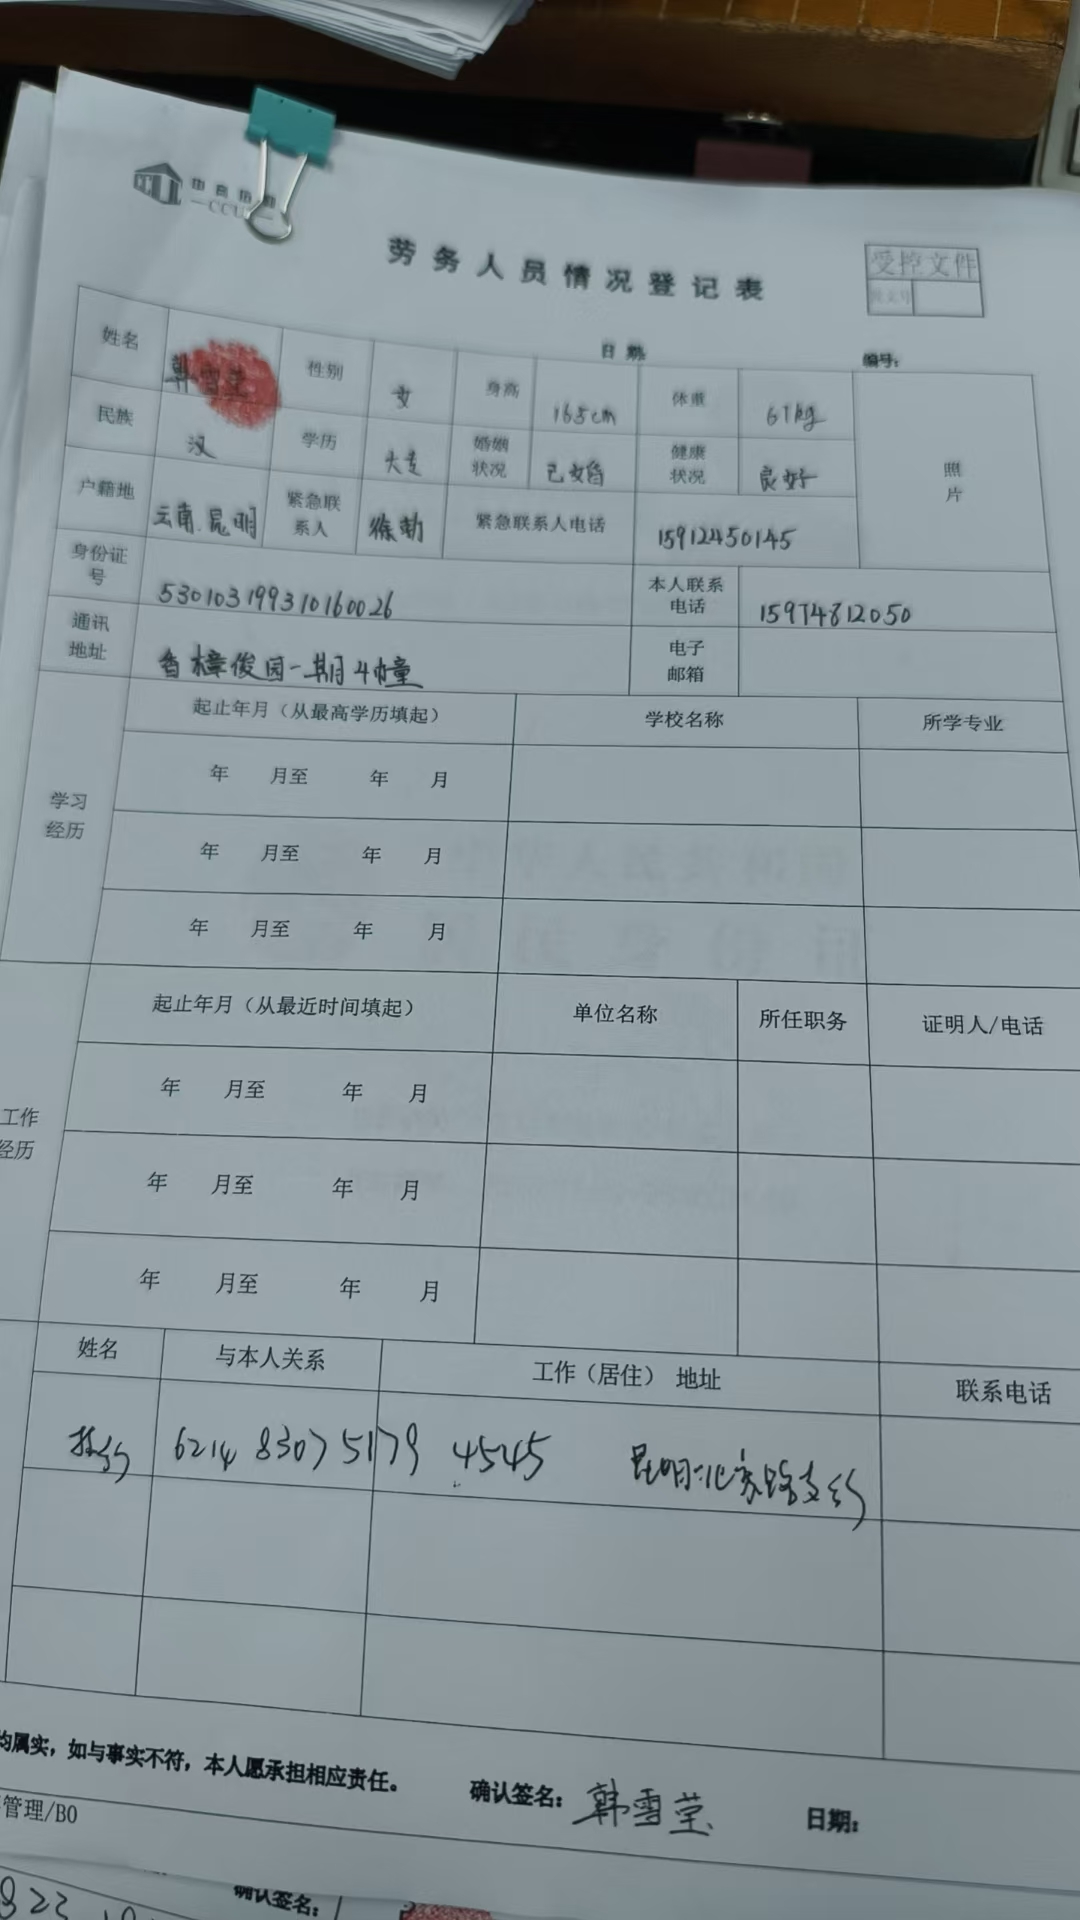 CCUL
劳务人员情况登记表
受控文件
日期:
编号:
姓名 韩雪莹 性别 女 身高 165cm 体重 61kg
民族 汉 学历 大专 婚姻状况 已婚 健康状况 良好 照片
户籍地 云南.昆明 紧急联系人 徐勤 紧急联系人电话 15912450145
身份证号 530103199310160026 本人联系电话 15974812050
通讯地址 香樟俊园一期4幢 电子邮箱
学习经历
起止年月(从最高学历填起) 学校名称 所学专业
年 月至 年 月
年 月至 年 月
年 月至 年 月
工作经历
起止年月(从最近时间填起) 单位名称 所任职务 证明人/电话
年 月至 年 月
年 月至 年 月
年 月至 年 月
姓名 与本人关系 工作(居住) 地址 联系电话
招行 6214 8307 5179 4545 昆明北京路支行
均属实，如与事实不符，本人愿承担相应责任。 确认签名: 韩雪莹 日期:
管理/B0
确认签名: